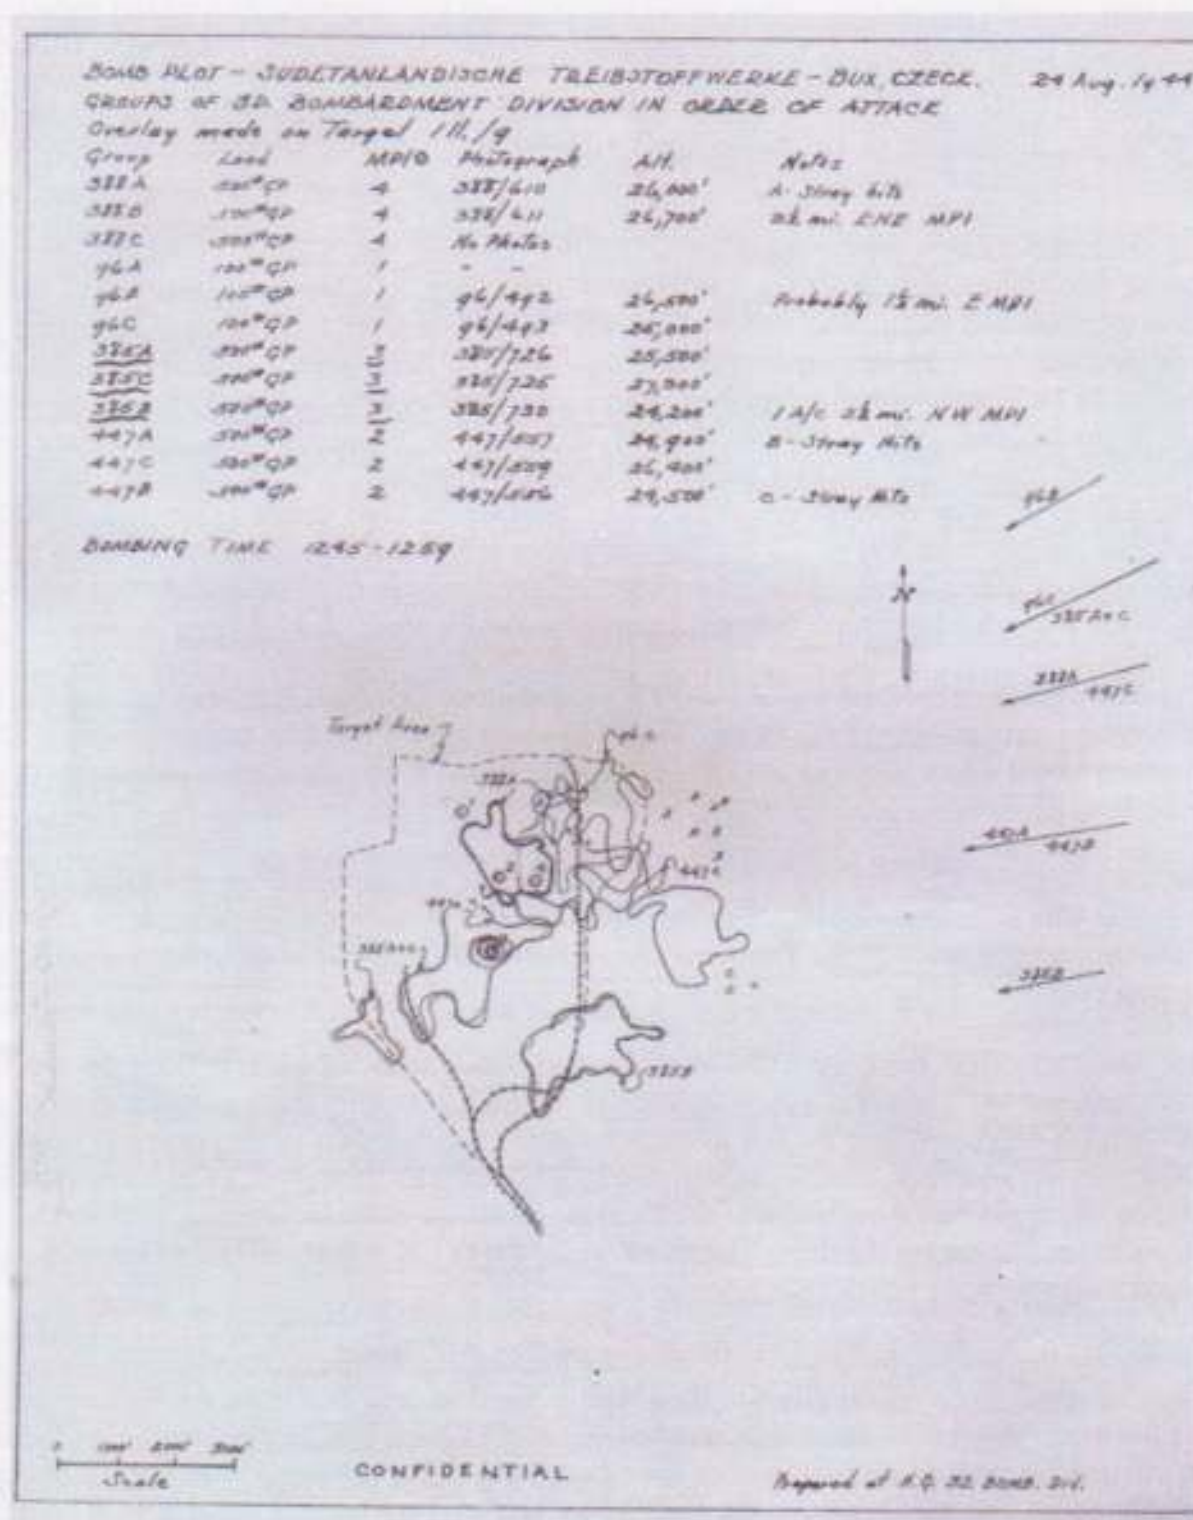 BOMB PLOT - SUDETANLANDISCHE TREIBSTOFFWERKE - BUX, CZECK. 24 Aug. 1944
GROUPS OF 3D. BOMBARDMENT DIVISION IN ORDER OF ATTACK
Overlay made on Target
Group Load MPI/O Photograph Alt. Notes
388A 500#GP 4 388/610 26,000' A- Stray hits
388B 500#GP 4 388/611 26,700' mi. ENE MPI
388C 500#GP 4 No Photos
96A 100#GP 1 - -
96B 100#GP 1 96/492 26,500' Probably 1½ mi. E MPI
96C 100#GP 1 96/493 25,000'
385A 500#GP 3 385/726 25,500'
385C 500#GP 3 385/725
385B 500#GP 3 385/730 24,200' 1 A/C mi. NW MPI
447A 500#GP 2 447/557 24,900' B- Stray Hits
447C 500#GP 2 447/559 26,400'
447B 500#GP 2 447/556 24,500' C- Stray Hits
96B
BOMBING TIME 1245-1259
N
96C
385 A & C
388A
447C
Target Area
96 C
388A
447A
447B
447C
447
385A+C
385B
385B
0 1000' 2000' 3000'
Scale
CONFIDENTIAL
Prepared at H.Q. 3D. BOMB. Div.